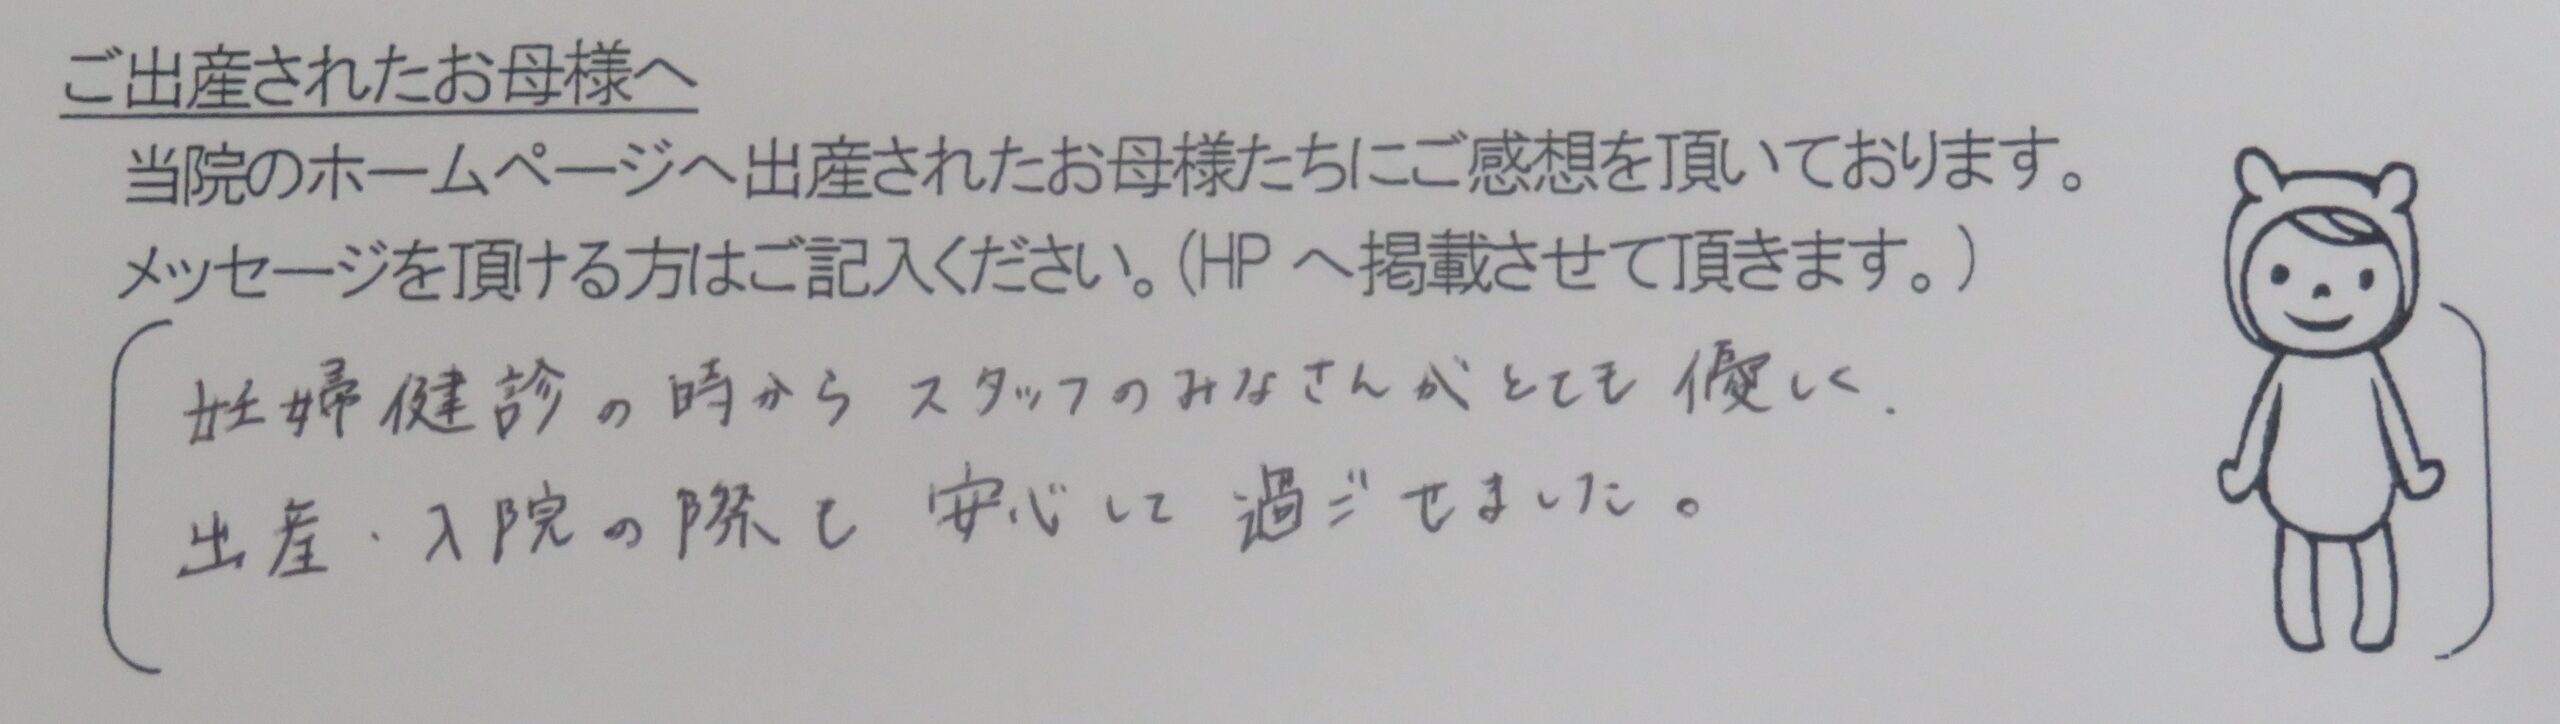 ご出産されたお母様へ
当院のホームページへ出産されたお母様たちにご感想を頂いております。
メッセージを頂ける方はご記入ください。(HP へ掲載させて頂きます。)
妊婦健診の時から スタッフのみなさんがとても 優しく、
出産・入院の際も 安心して 過ごせました。